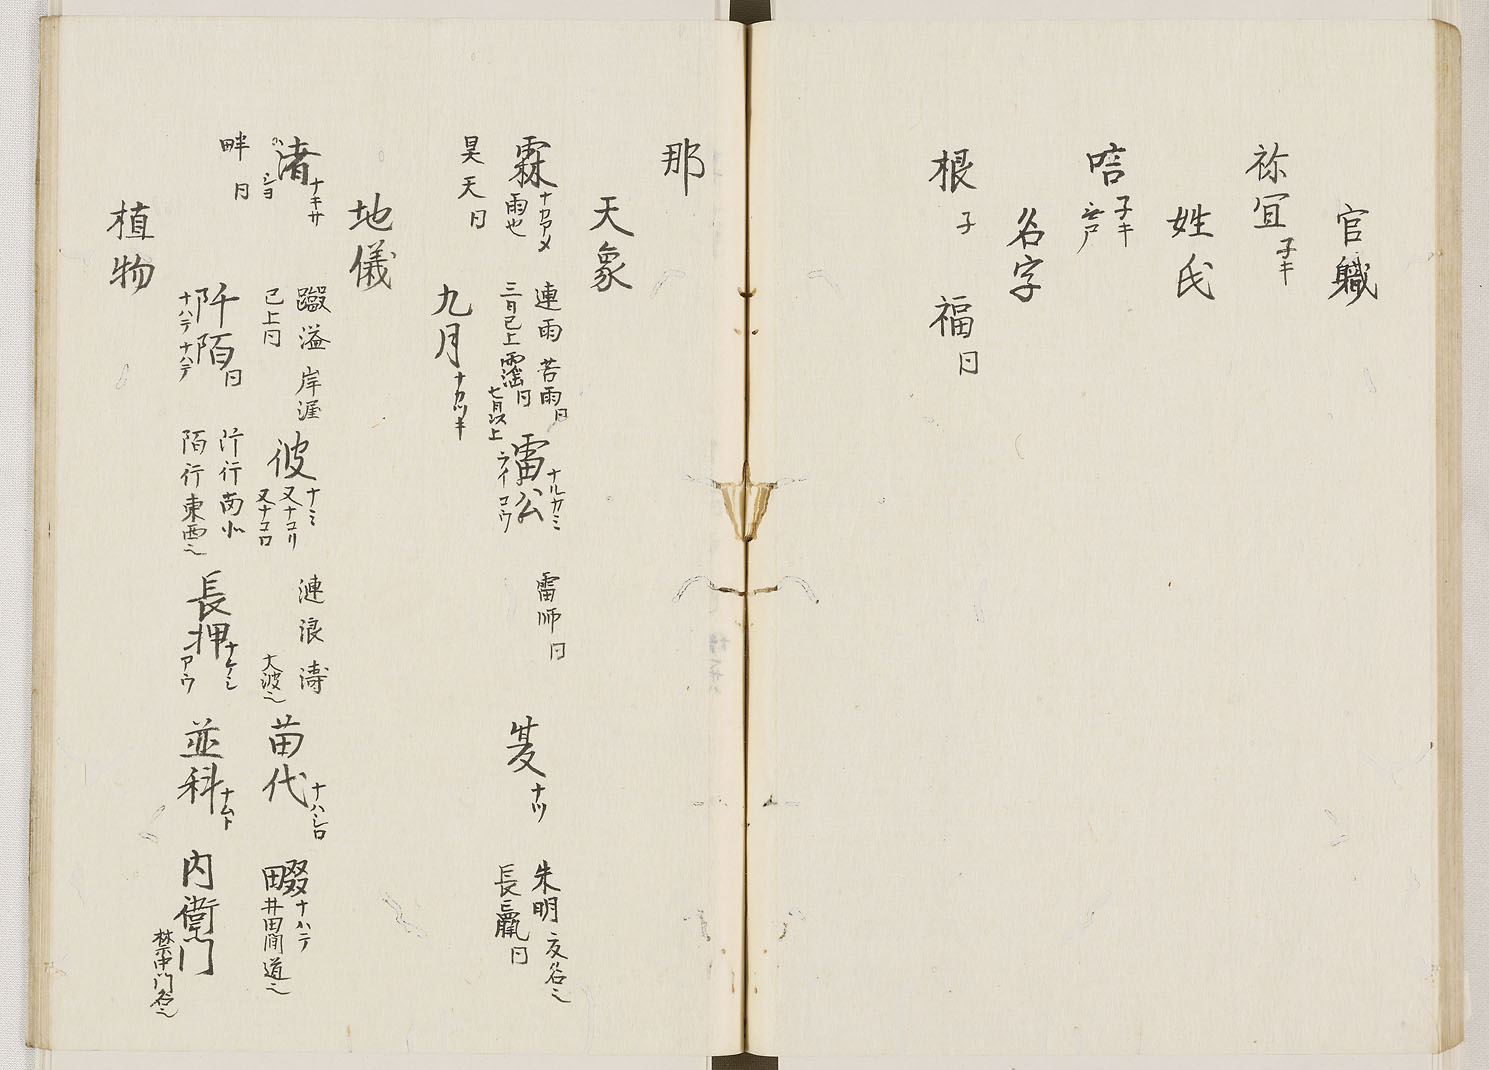 官職
祢冝 子キ
姓氏
唁 子キ
名字
根 子 福 同
那
天象
霖 ナカアメ 雨也 連雨 苦雨 同 三日已上 霪 同 七月以上 雷公 ナルカミ ライコウ 雷師 同 夏 ナツ 朱明 夏名也 長嬴 同
昊天 同 九月 ナカツキ
地儀
渚 ナキサ シヨ 溢 岸 涯 已上同 波 ナミ 又ナコリ 又ナコロ 漣 浪 濤 大波也 苗代 ナハシロ 畷 ナハテ 井田間道也
畔 同 阡陌 同 ナハテ ナハテ 阡行南北 陌行東西也 長押 ナケシ アウ 並科 ナムト 内衛門 禁中門名也
植物